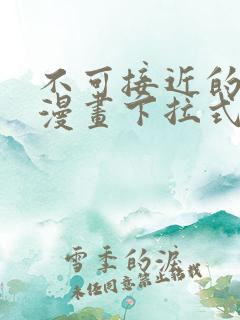 不可接近的
漫畫下拉式
雪季的淚
未经同意禁止转载